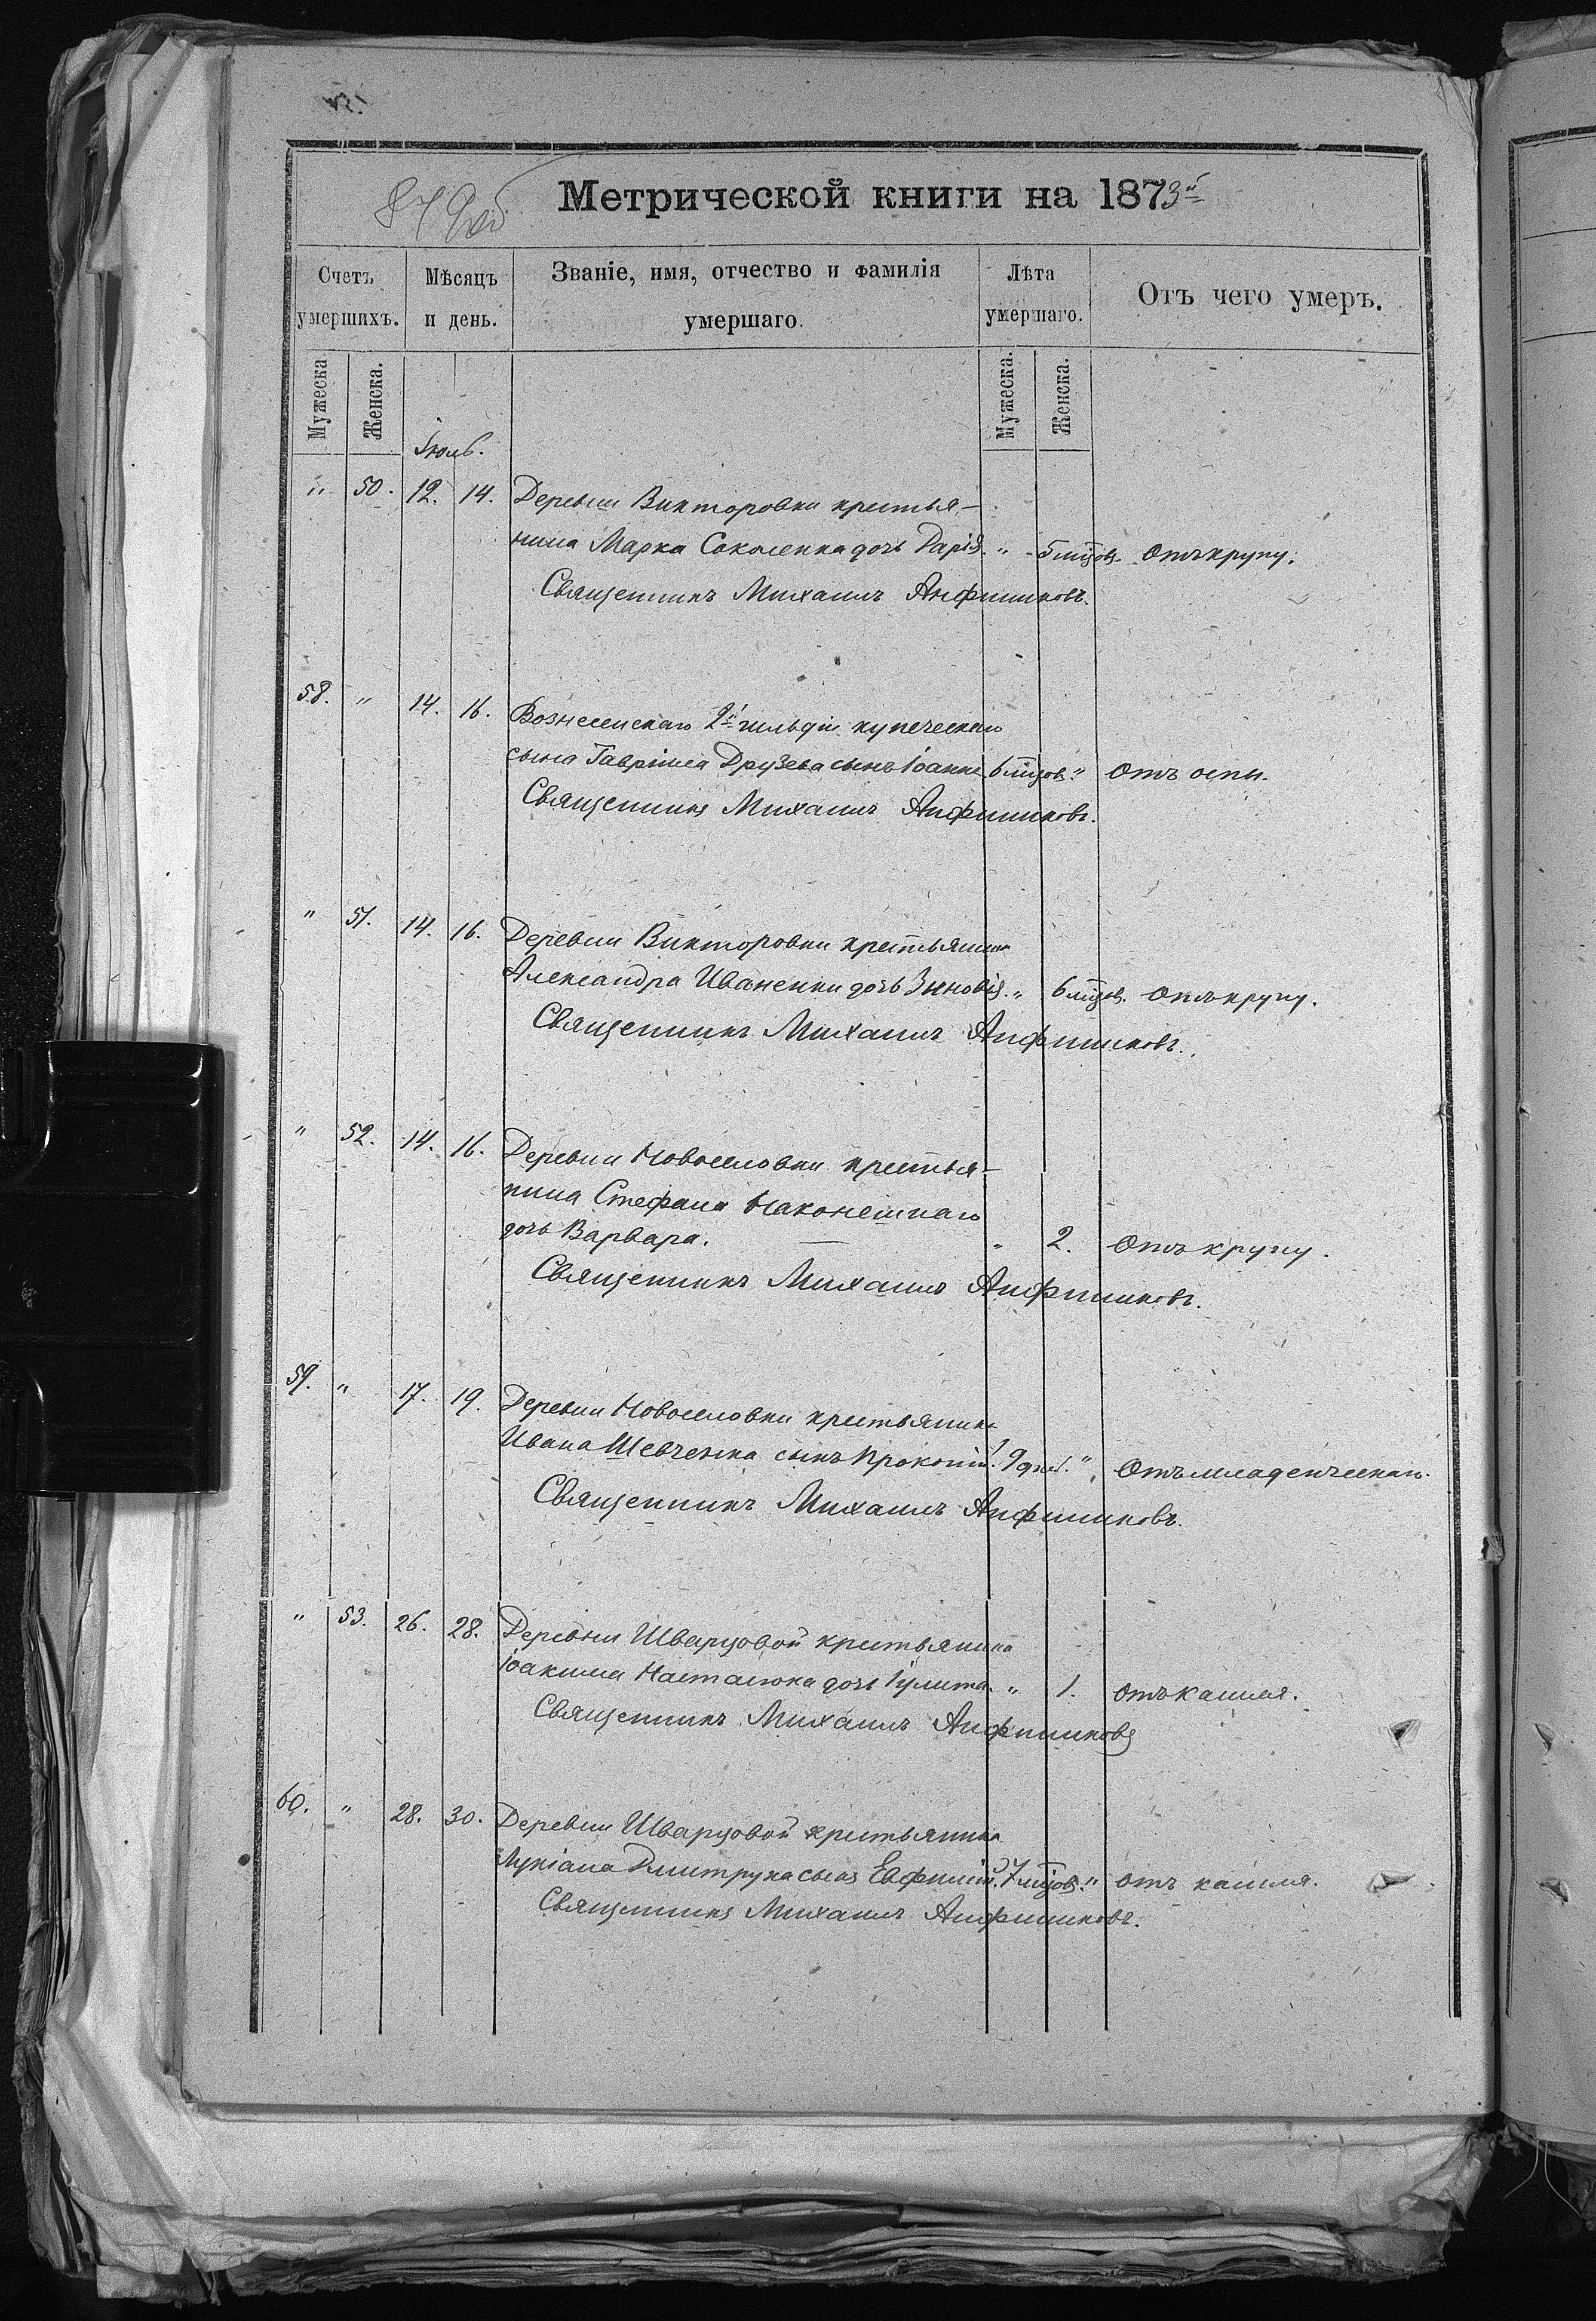 849об
Метрической книги на 1873й
Счетъ умершихъ.
Мѣсяцъ и день.
Званіе, имя, отчество и фамилія умершаго.
Лѣта умершаго.
Отъ чего умеръ.
Мужеска
Женска.
Мужеска.
Женска.
Іюль.
" 50. 12. 14. Деревни Викторовки крестья-
нина Марка Соколенка дочь Дарія. " 5 мцовъ. Отъ крупу.
Священникъ Михаилъ Анфиниковъ.
58. " 14. 16. Вознесенскаго 2й гильдіи купеческаго
сына Гавріила Друзева сынъ Іоаннъ 6 мцовъ. " Отъ оспы.
Священникъ Михаилъ Анфиниковъ.
" 51. 14. 16. Деревни Викторовки крестьянина
Александра Иваненки дочь Зиновія. " 6 мцов. Отъ крупу.
Священникъ Михаилъ Анфиниковъ.
" 52. 14. 16. Деревни Новоселовки крестья-
нина Стефана Наконешнаго
дочь Варвара. " 2. Отъ крупу.
Священникъ Михаилъ Анфиниковъ.
59. " 17. 19. Деревни Новоселовки крестьянина
Ивана Шевченка сынъ Прокопій. 9 дней. " Отъ младенческаго.
Священникъ Михаилъ Анфиниковъ.
" 53. 26. 28. Деревни Шварцовой крестьянина
Іоакима Насталюка дочь Іулита. " 1. Отъ кашля.
Священникъ Михаилъ Анфиниковъ
60. " 28. 30. Деревни Шварцовой крестьянина
Лукіана Дмитрука сынъ Евфимій. 7 мцовъ. " Отъ кашля.
Священникъ Михаилъ Анфиниковъ.